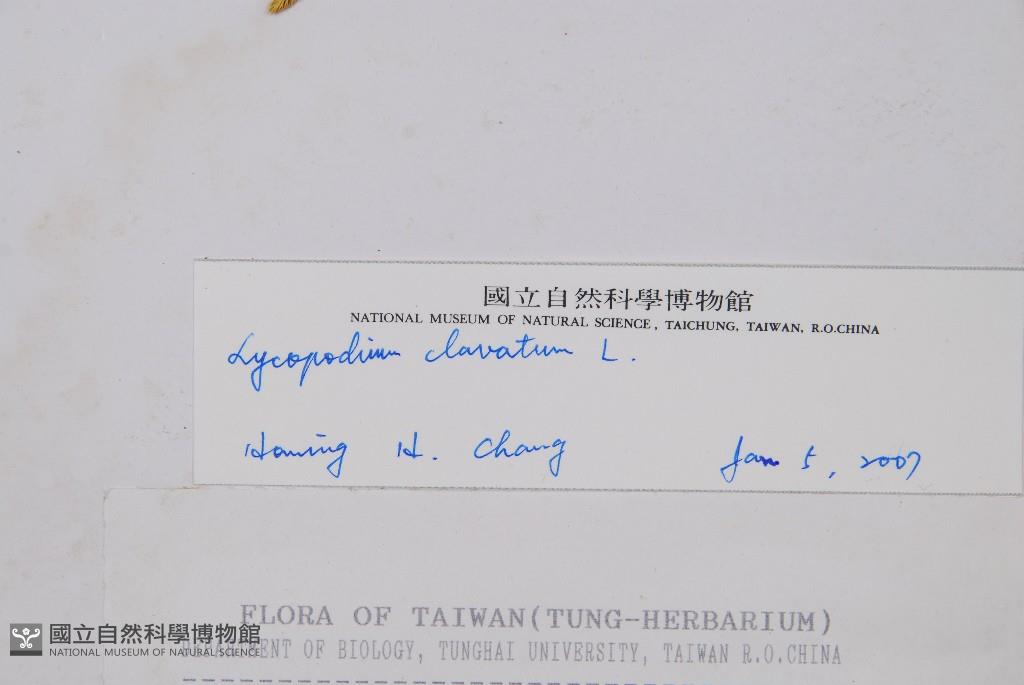 國立自然科學博物館
NATIONAL MUSEUM OF NATURAL SCIENCE, TAICHUNG, TAIWAN, R.O.CHINA
Lycopodium clavatum L.
Homing H. Chang Jan 5, 2007
FLORA OF TAIWAN(TUNG-HERBARIUM)
DEPARTMENT OF BIOLOGY, TUNGHAI UNIVERSITY, TAIWAN R.O.CHINA
國立自然科學博物館
NATIONAL MUSEUM OF NATURAL SCIENCE